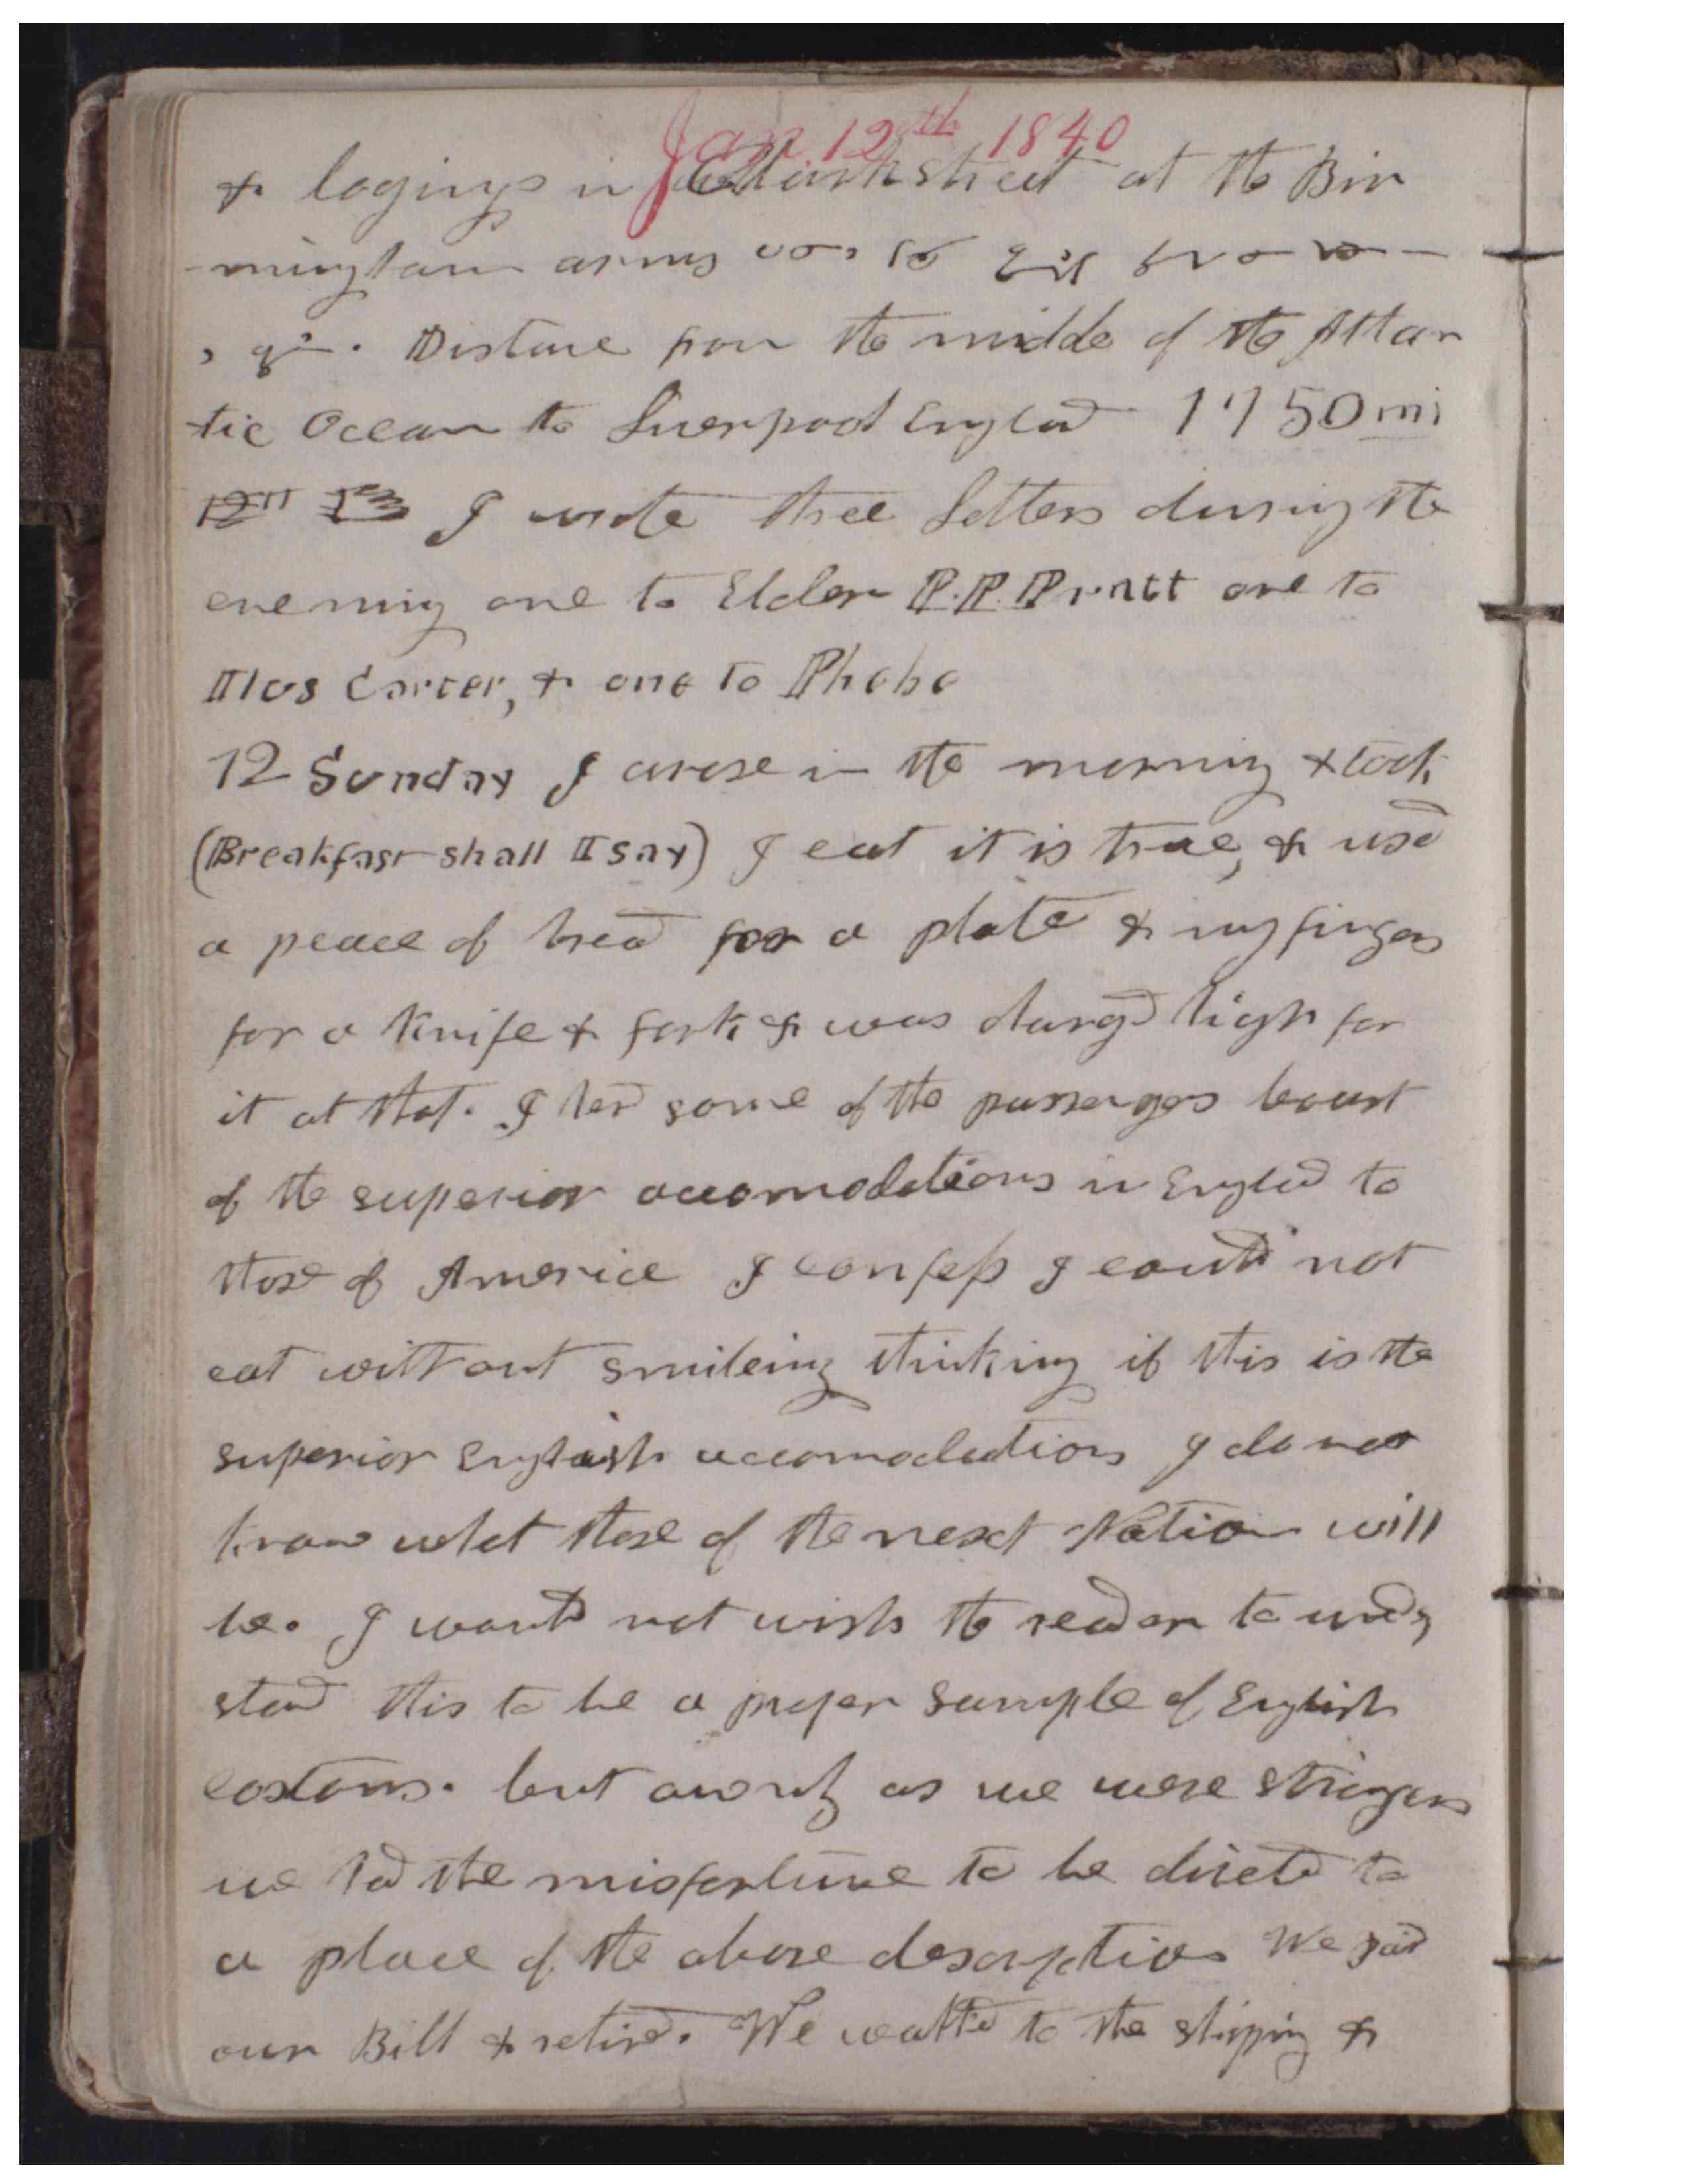 Jan 12th 1840
& logings in street at the Bir
-mingham arms
Distance from the middle of the Atlan
-tic Ocean to Liverpool England 1750 mi
12th I wrote three letters during the
evening one to Elder P. P. Pratt one to
Ilus Carter, & one to Phebe
12 Sunday I arose in the morning & took
(Breakfast shall I say) I eat it is true, & used
a peace of bread for a plate & my fingers
for a knife & fork & was charged high for
it at that. I herd some of the passengers boast
of the superior accomodations in England to
those of America I confess I could not
eat without smileing thinking if this is the
superior English accomodations I do not
know what those of the next Nation will
be. I would not wish the reader to under
stand this to be a proper sample of English
costoms. but as we were strangers
we had the misfortune to be directed to
a place of the above description We paid
our Bill & retired. We walked to the shiping &